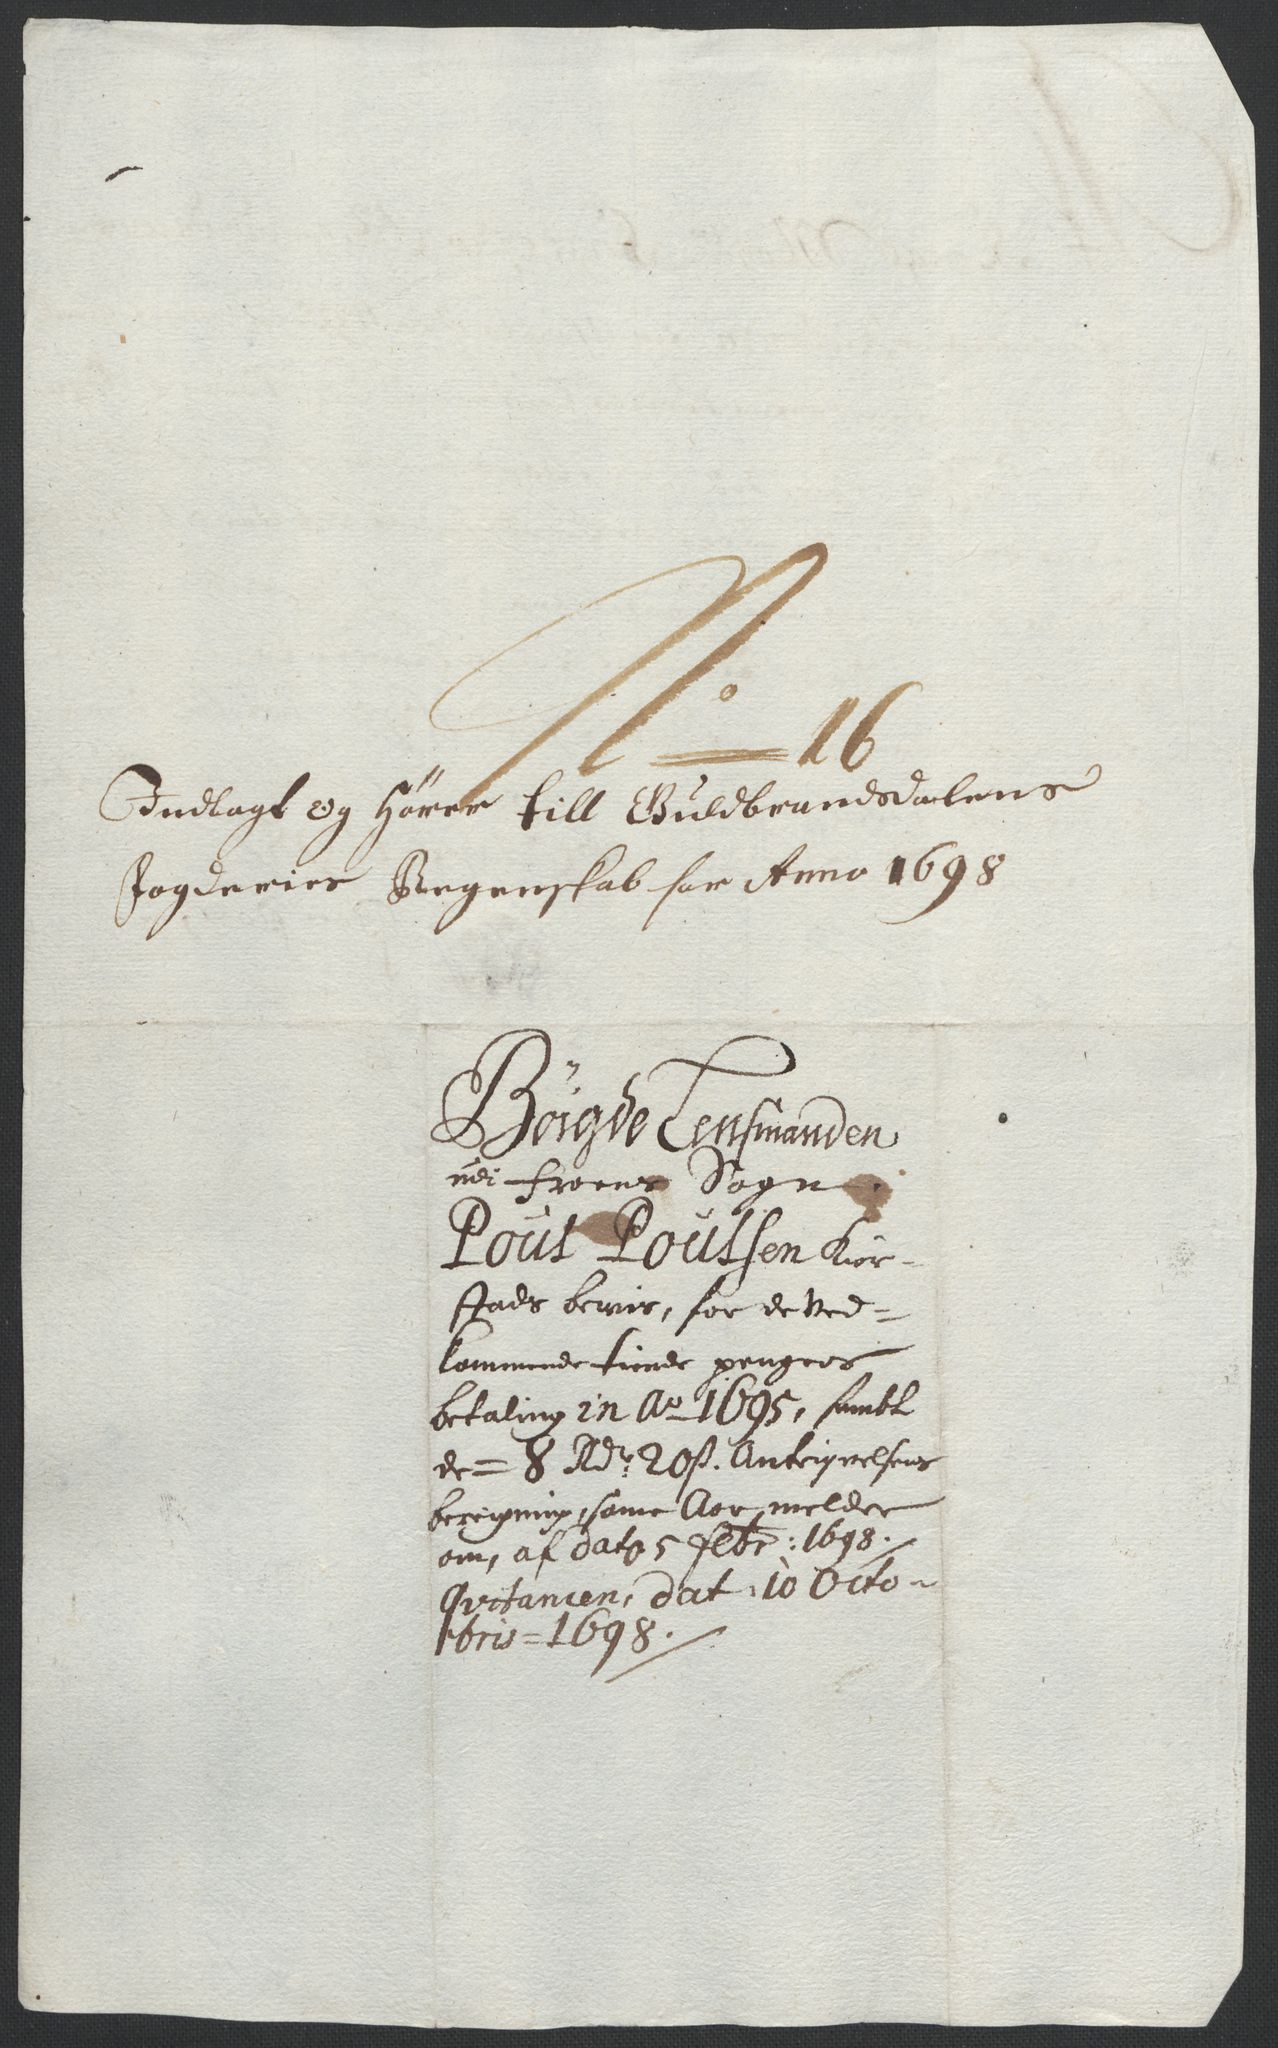 No 16
Indlagt og hörer till Guldbrandsdalens
Fogderies Regenskab for Anno 1698
Böigde Lensmanden
udi Froens Sogn
Poul Poulsen Kior-
stads bewis, for de ved=
kommende tiende penges
betaling in Ao 1695, sambt
de = 8 Rdr 20 ß. Antegnelsens
beregning, samme Aar melder
om, af dato 5 Febr: 1698.
Qvitancen, dat. 10 Octo-
bris = 1698.